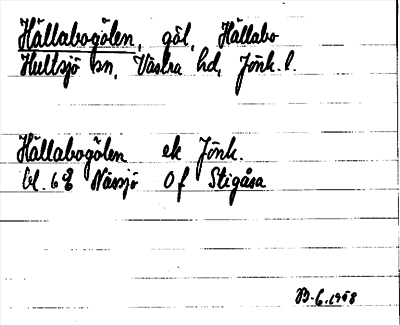 Hällabogölen, göl, Hällabo
Hultsjö sn, Västra hd, Jönk. l.
Hällabogölen ek Jönk.
bl. 6 E Nässjö 0 f Stigåsa
1968